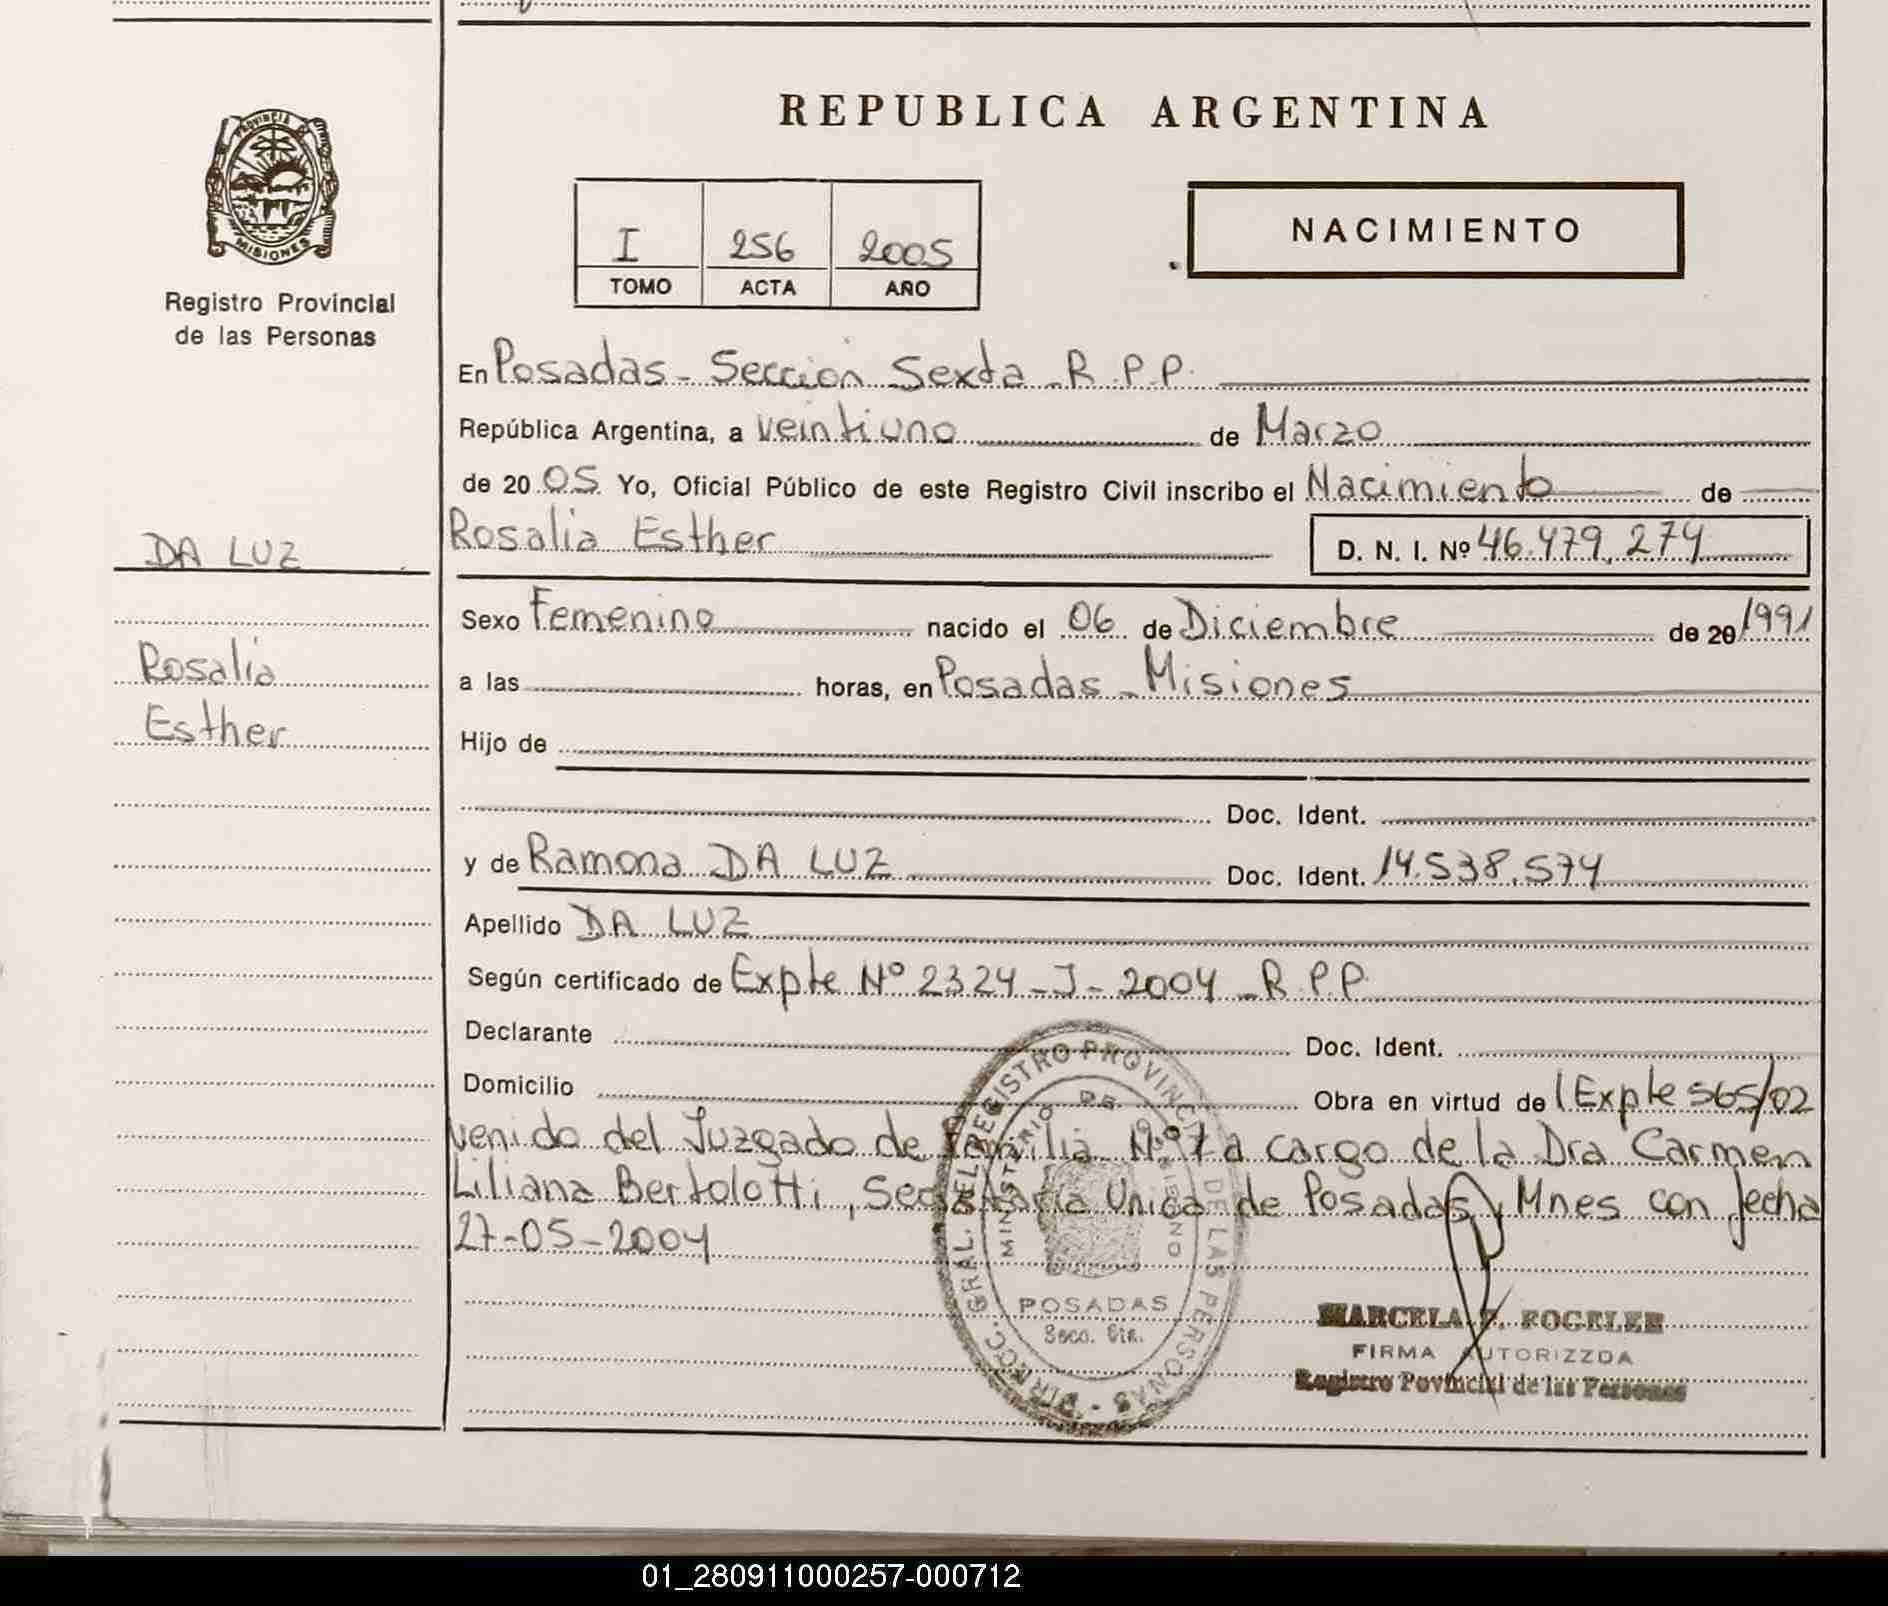 REPUBLICA ARGENTINA
PROVINCIA DE
MISIONES
Registro Provincial
de las Personas
I 256 2005
TOMO ACTA AÑO
NACIMIENTO
En Posadas - Sección Sexta - R.P.P.
República Argentina, a veintiuno de Marzo
de 20 05 Yo, Oficial Público de este Registro Civil inscribo el Nacimiento de
DA LUZ
Rosalia Esther D. N. I. Nº 46.479.274
Sexo Femenino nacido el 06 de Diciembre de 20 1991
Rosalia
a las horas, en Posadas - Misiones
Esther
Hijo de
Doc. Ident.
y de Ramona DA LUZ Doc. Ident. 14.538.574
Apellido DA LUZ
Según certificado de Expte Nº 2324 - J - 2004 - R.P.P.
Declarante Doc. Ident.
Domicilio Obra en virtud de l Expte 565/02
venido del Juzgado de Familia Nº 1 a cargo de la Dra Carmen
Liliana Bertolotti, Secretaria Unica de Posadas, Mnes con fecha
27-05-2004
DIRECC. GRAL. DEL REGISTRO PROVINCIAL DE LAS PERSONAS
MINISTERIO DE GOBIERNO
POSADAS
Secc. 6ta.
MARCELA FOGELER
FIRMA AUTORIZZDA
Registro Povincial de las Personas
01_280911000257-000712